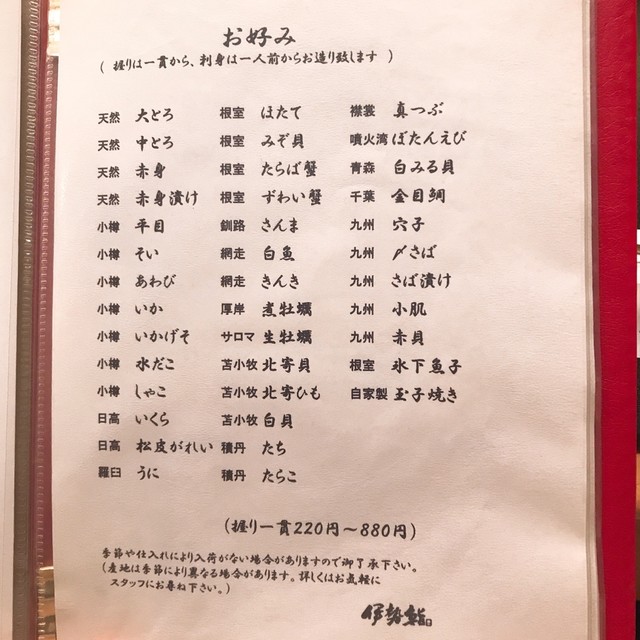 お好み
( 握りは一貫から、刺身は一人前からお造り致します )
天然 大とろ
天然 中とろ
天然 赤身
天然 赤身漬け
小樽 平目
小樽 そい
小樽 あわび
小樽 いか
小樽 いかげそ
小樽 水だこ
小樽 しゃこ
日高 いくら
日高 松皮がれい
羅臼 うに
根室 ほたて
根室 みぞ貝
根室 たらば蟹
根室 ずわい蟹
釧路 さんま
網走 白魚
網走 きんき
厚岸 煮牡蠣
サロマ 生牡蠣
苫小牧 北寄貝
苫小牧 北寄ひも
苫小牧 白貝
積丹 たち
積丹 たらこ
襟裳 真つぶ
噴火湾 ぼたんえび
青森 白みる貝
千葉 金目鯛
九州 穴子
九州 〆さば
九州 さば漬け
九州 小肌
九州 赤貝
根室 氷下魚子
自家製 玉子焼き
(握り一貫220円〜880円)
季節や仕入れにより入荷がない場合がありますので御了承下さい。
(産地は季節により異なる場合があります。詳しくはお気軽に
スタッフにお尋ね下さい。)
伊勢鮨